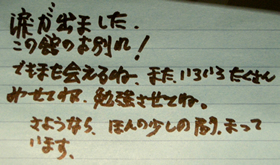 涙が出ました.
この館のお別れ!
でもまた会えるね. また、いろいろ たくさん
みせてね. 勉強させてね。
さようなら、ほんの少しの間、まって
います。